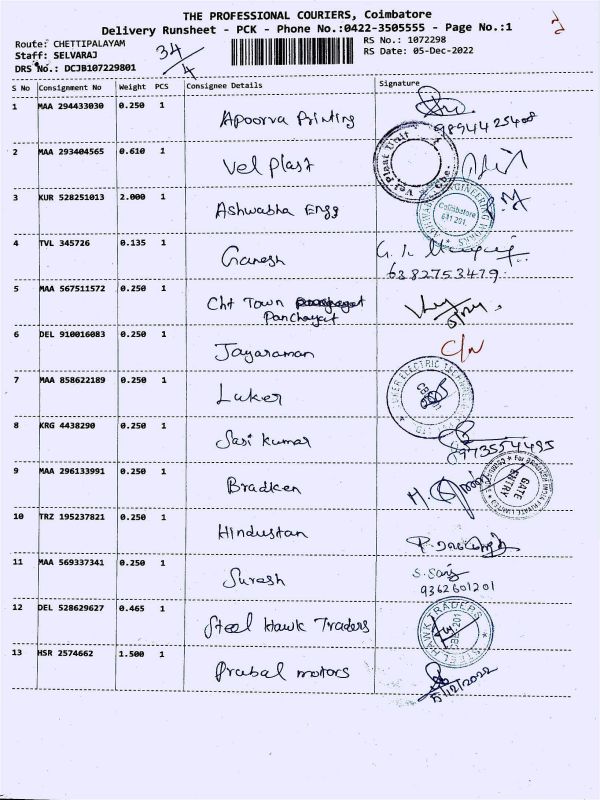 THE PROFESSIONAL COURIERS, Coimbatore
Delivery Runsheet - PCK - Phone No.:0422-3505555 - Page No.:1
Route: CHETTIPALAYAM 34/4 RS No.: 1072298
Staff: SELVARAJ RS Date: 05-Dec-2022
DRS No.: DCJB107229801
S No Consignment No Weight PCS Consignee Details Signature
1 MAA 294433030 0.250 1 Apoorva Printing 9894425408
2 MAA 293404565 0.610 1 Vel Plast Vel Plast Unit Cbe.
3 KUR 528251013 2.000 1 Ashwabha Engg ENGINEERING WORKS Coimbatore 641 201.
4 TVL 345726 0.135 1 Ganesh 6382753479
5 MAA 567511572 0.250 1 Cht Town Panchayat
6 DEL 910016083 0.250 1 Jayaraman C/N
7 MAA 858622189 0.250 1 Luker LUKER ELECTRIC TECHNOLOGIES
8 KRG 4438290 0.250 1 Sasi kumar 8973554495
9 MAA 296133991 0.250 1 Bradken GATE ENTRY
10 TRZ 195237821 0.250 1 Hindustan
11 MAA 569337341 0.250 1 Suresh 9362601201
12 DEL 528629627 0.465 1 Steel Hawk Traders STEEL HAWK TRADERS
13 HSR 2574662 1.500 1 Prabal motors 5/12/2022